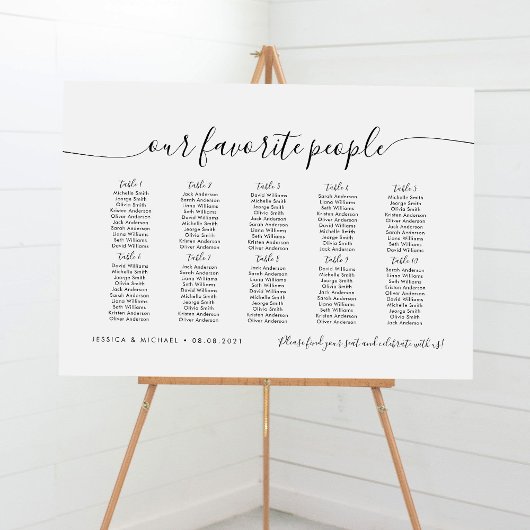 our favorite people
Table 1
Michelle Smith
Jearge Smith
Olivia Smith
Kristen Anderson
Oliver Anderson
Jack Anderson
Sarah Anderson
Liana Williams
Seth Williams
David Williams
Table 2
Jack Anderson
Sarah Anderson
Liana Williams
Seth Williams
David Williams
Michelle Smith
Jearge Smith
Olivia Smith
Kristen Anderson
Oliver Anderson
Table 3
David Williams
Michelle Smith
Jearge Smith
Olivia Smith
Kristen Anderson
Oliver Anderson
Jack Anderson
Sarah Anderson
Liana Williams
Seth Williams
Table 4
Sarah Anderson
Liana Williams
Seth Williams
David Williams
Michelle Smith
Jearge Smith
Olivia Smith
Kristen Anderson
Oliver Anderson
Jack Anderson
Table 5
Michelle Smith
Jearge Smith
Olivia Smith
Kristen Anderson
Oliver Anderson
Jack Anderson
Sarah Anderson
Liana Williams
Seth Williams
David Williams
Table 6
David Williams
Michelle Smith
Jearge Smith
Olivia Smith
Jack Anderson
Sarah Anderson
Liana Williams
Seth Williams
Kristen Anderson
Oliver Anderson
Table 7
Jack Anderson
Sarah Anderson
Liana Williams
Seth Williams
David Williams
Michelle Smith
Jearge Smith
Olivia Smith
Kristen Anderson
Oliver Anderson
Table 8
Jack Anderson
Sarah Anderson
Liana Williams
Seth Williams
David Williams
Michelle Smith
Jearge Smith
Olivia Smith
Kristen Anderson
Oliver Anderson
Table 9
Michelle Smith
Jearge Smith
Olivia Smith
Jack Anderson
Sarah Anderson
Liana Williams
Seth Williams
David Williams
Kristen Anderson
Oliver Anderson
Table 10
Sarah Anderson
Liana Williams
Seth Williams
Kristen Anderson
Oliver Anderson
David Williams
Michelle Smith
Jearge Smith
Olivia Smith
Jack Anderson
JESSICA & MICHAEL • 08.08.2021
Please find your seat and celebrate with us!